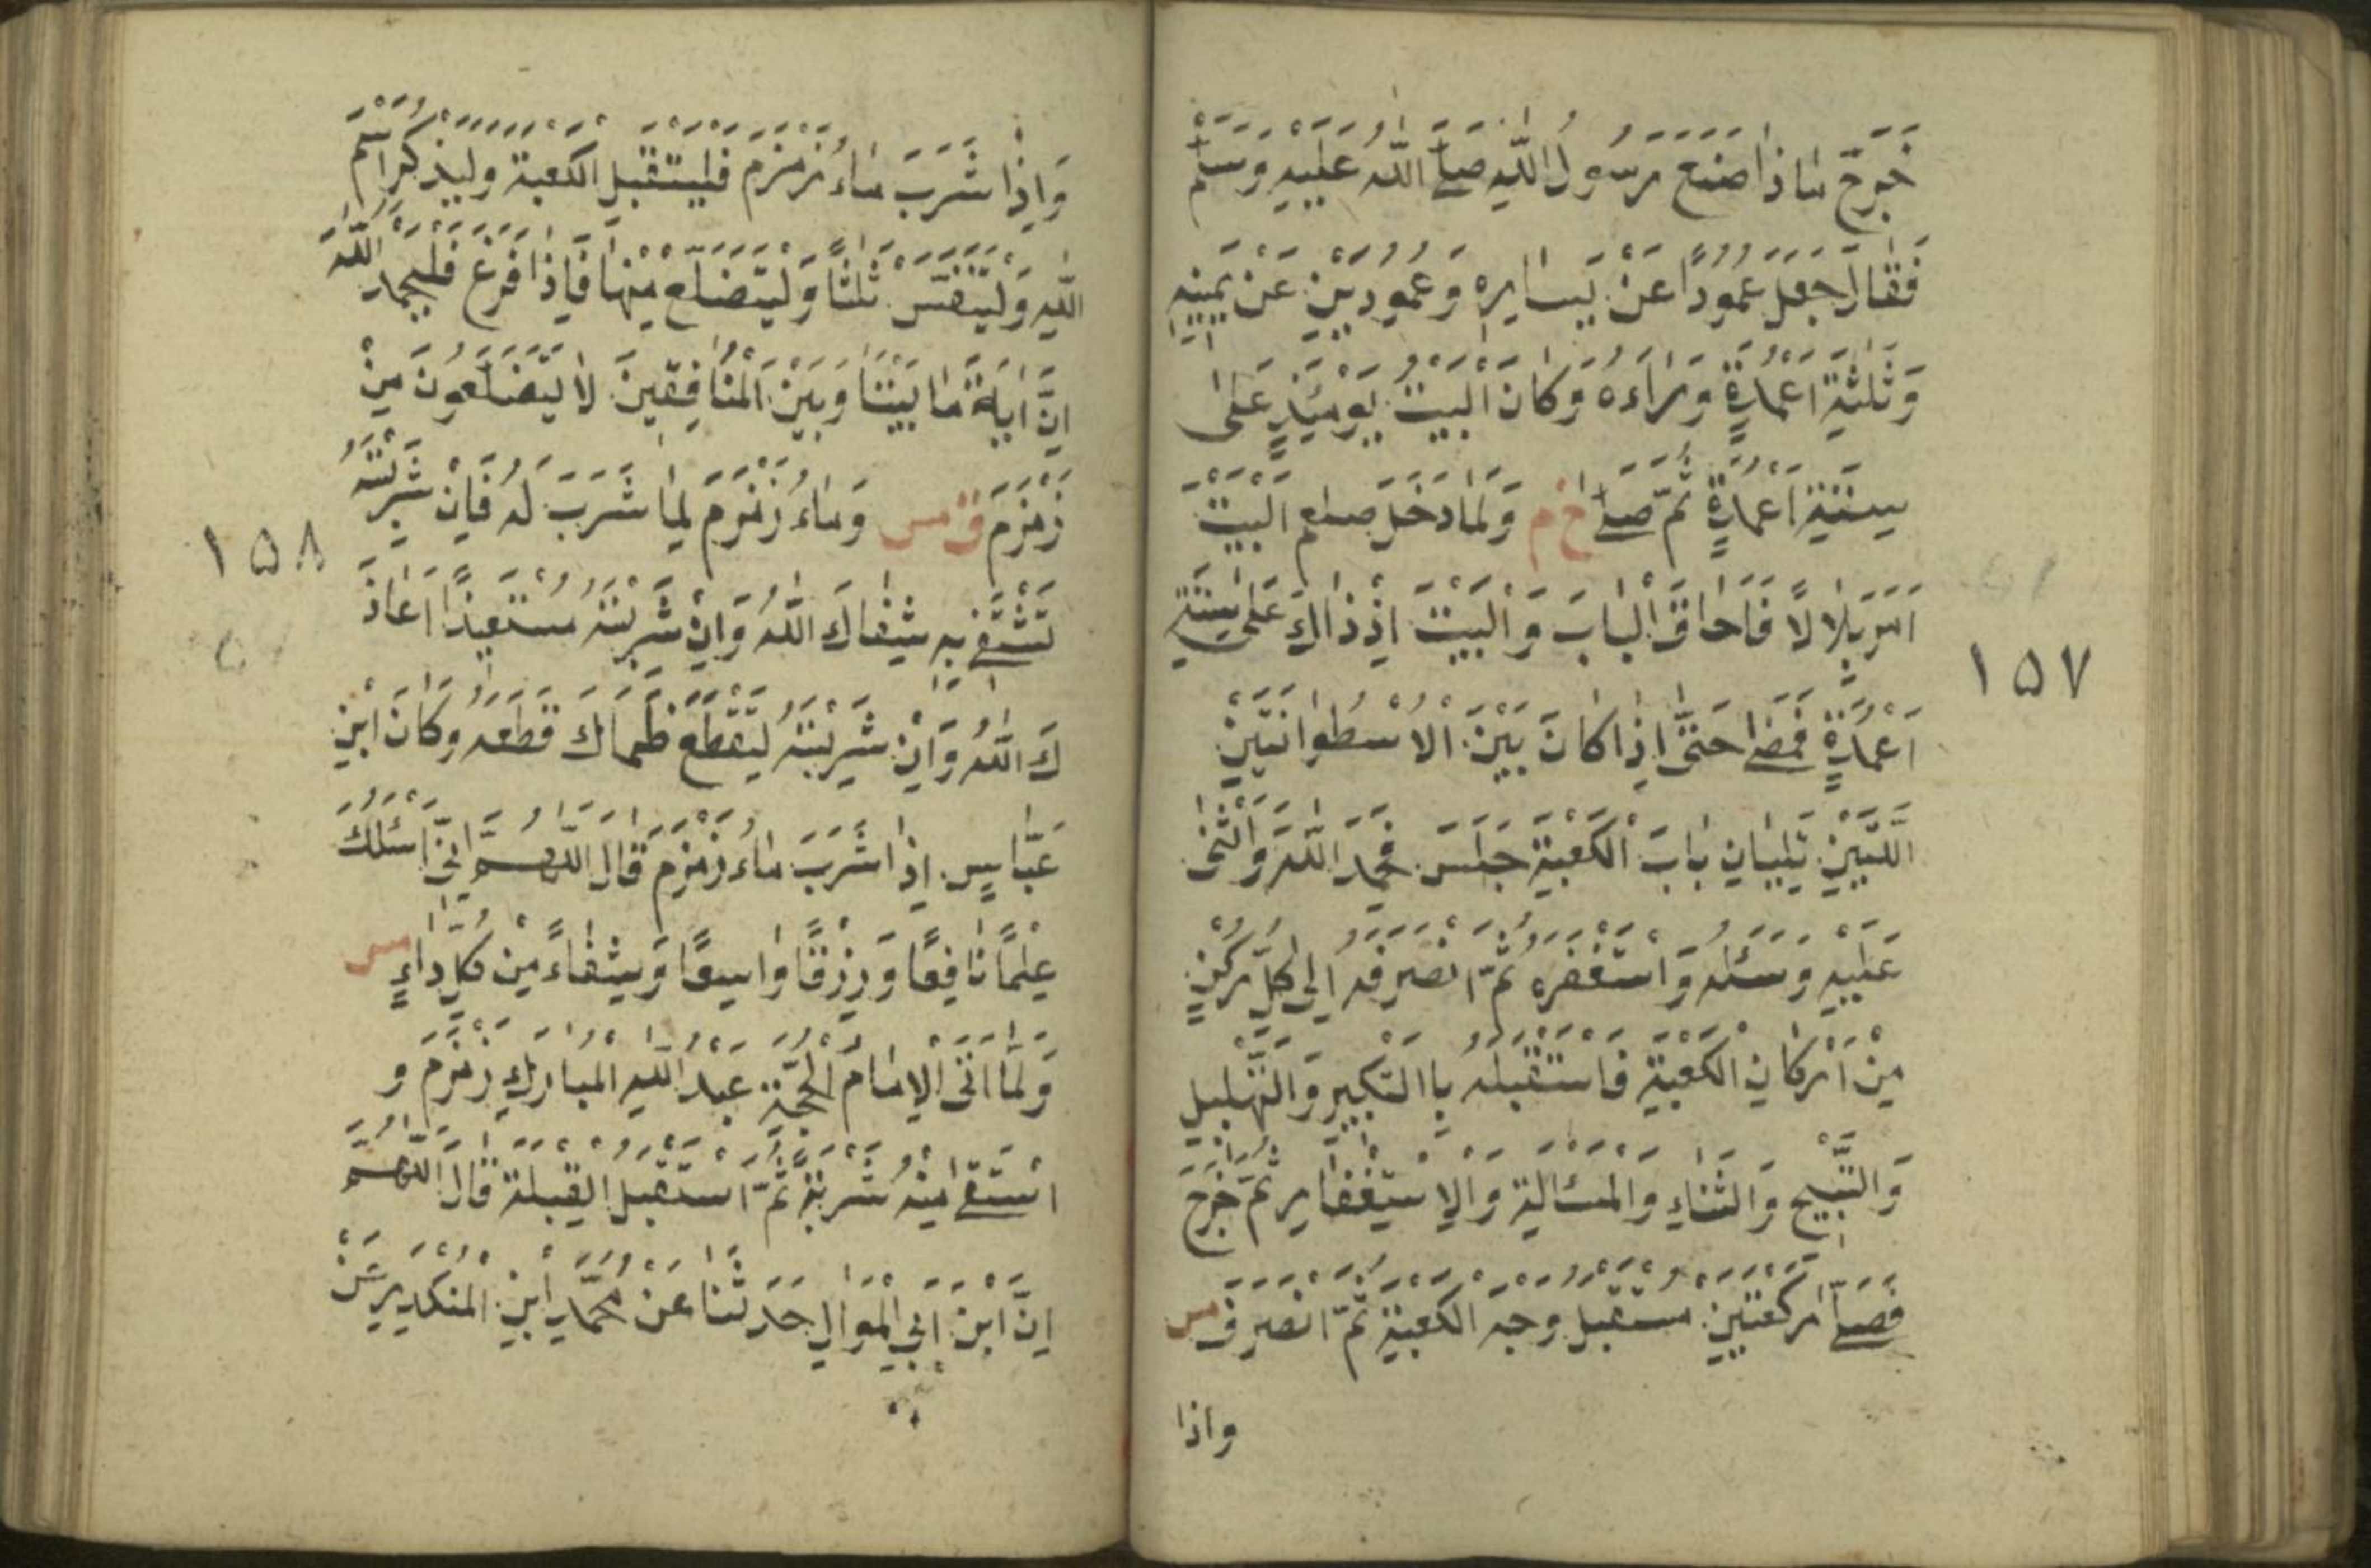 خَرَجَ مَاذَا صَنَعَ رَسُولُ اللّٰهِ صَلَّے اللّٰهُ عَلَيْهِ وَسَلَّمَ
فَقَالَ جَعَلَ عَمُودًا عَنْ يَسَارِهِ وَعَمُودَيْنِ عَنْ يَمِينِهِ
وَثَلٰثَةَ اَعْمِدَةٍ وَرَاءَهُ وَكَانَ الْبَيْتُ يَوْمَئِذٍ عَلٰى
سِتَّةِ اَعْمِدَةٍ ثُمَّ صَلَّے خ م وَلَمَّا دَخَلَ صلعم الْبَيْتَ
اَمَرَ بِلَالًا فَاَجَافَ الْبَابَ وَالْبَيْتَ اِذْ ذَاكَ عَلٰى سِتَّةِ
اَعْمِدَةٍ فَمَضٰے حَتّٰى اِذَا كَانَ بَيْنَ الْاُسْطُوَانَتَيْنِ
اللَّتَيْنِ تَلِيَانِ بَابَ الْكَعْبَةِ جَلَسَ فَحَمِدَ اللّٰهَ وَاَثْنٰى
عَلَيْهِ وَسَئَلَهُ وَاسْتَغْفَرَهُ ثُمَّ انْصَرَفَ اِلٰى كُلِّ رُكْنٍ
مِنْ اَرْكَانِ الْكَعْبَةِ فَاسْتَقْبَلَهُ بِاالتَّكْبِيرِ وَالتَّهْلِيلِ
وَالتَّسْبِيحِ وَالثَّنَاءِ وَالْمَسْئَالَةِ وَالْاِسْتِغْفَارِ ثُمَّ خَرَجَ
فَصَلَّے رَكْعَتَيْنِ مُسْتَقْبِلَ وَجْهِ الْكَعْبَةِ ثُمَّ انْصَرَفَ مس
واذا
١٥٧
وَاِذَا شَرَبَ مَاءُ زَمْزَمَ فَلْيَسْتَقْبِلِ الْكَعْبَةَ وَلْيَذْكُرِ اسْمَ
اللّٰهِ وَلْيَتَنَفَّسْ ثَلٰثًا وَلْيَتَضَلَّعْ مِنْهَا فَاِذَا فَرَغَ فَلْيَحْمَدِ اللّٰهَ
اِنَّ اٰيَةً مَا بَيْنَنَا وَبَيْنَ الْمُنَافِقِينَ لَا يَتَضَلَّعُونَ مِنْ
زَمْزَمَ ق مس وَمَاءُ زَمْزَمَ لِمَا شَرَبَ لَهُ فَاِنْ شَرِبْتَهُ
تَسْتَشْفِے بِهِ شِفَاكَ اللّٰهُ وَاِنْ شَرِبْتَهُ مُسْتَعِيذًا اَعَاذَ
كَ اللّٰهُ وَاِنْ شَرِبْتَهُ لِيَقْطَعَ ظَمَاكَ قَطَعَهُ وَكَانَ ابْنِ
عَبَّاسٍ اِذَا شَرَبَ مَاءُ زَمْزَمَ قَالَ اللّٰهُمَّ اِنِّى اَسْئَلُكَ
عِلْمًا نَافِعًا وَرِزْقًا وَاسِعًا وَشِفَاءً مِنْ كُلِّ دَاءٍ مس
وَلَمَّا اَتَى الْاِمَامُ الْحُجَّةِ عَبْدُ اللّٰهِ الْمُبَارَكِ زَمْزَمَ وَ
اسْتَقٰے مِنْهُ شَرْبَةً ثُمَّ اسْتَقْبَلَ الْقِبْلَةَ قَالَ اللّٰهُمَّ
اِنَّ ابْنَ اَبِي الْمَوَالِ حَدَّثَنَا عَنْ مُحَمَّدِ ابْنِ الْمُنْكَدِرِ عَنْ
١٥٨